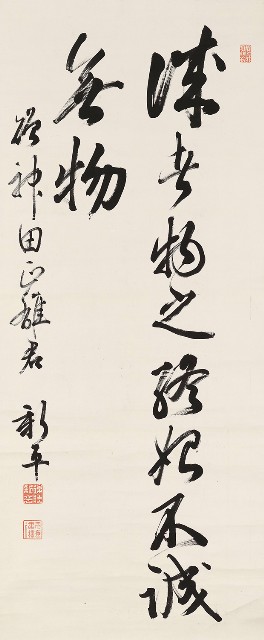 誠者物之終始不誠
無物
為神田正雄君 新平